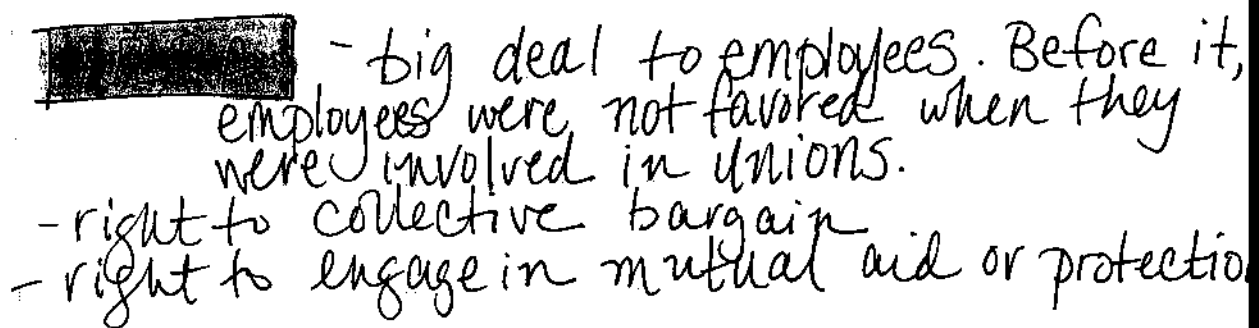 - big deal to employees. Before it,
employees were not favored when they
were involved in unions.
- right to collective bargain
- right to engage in mutual aid or protectio